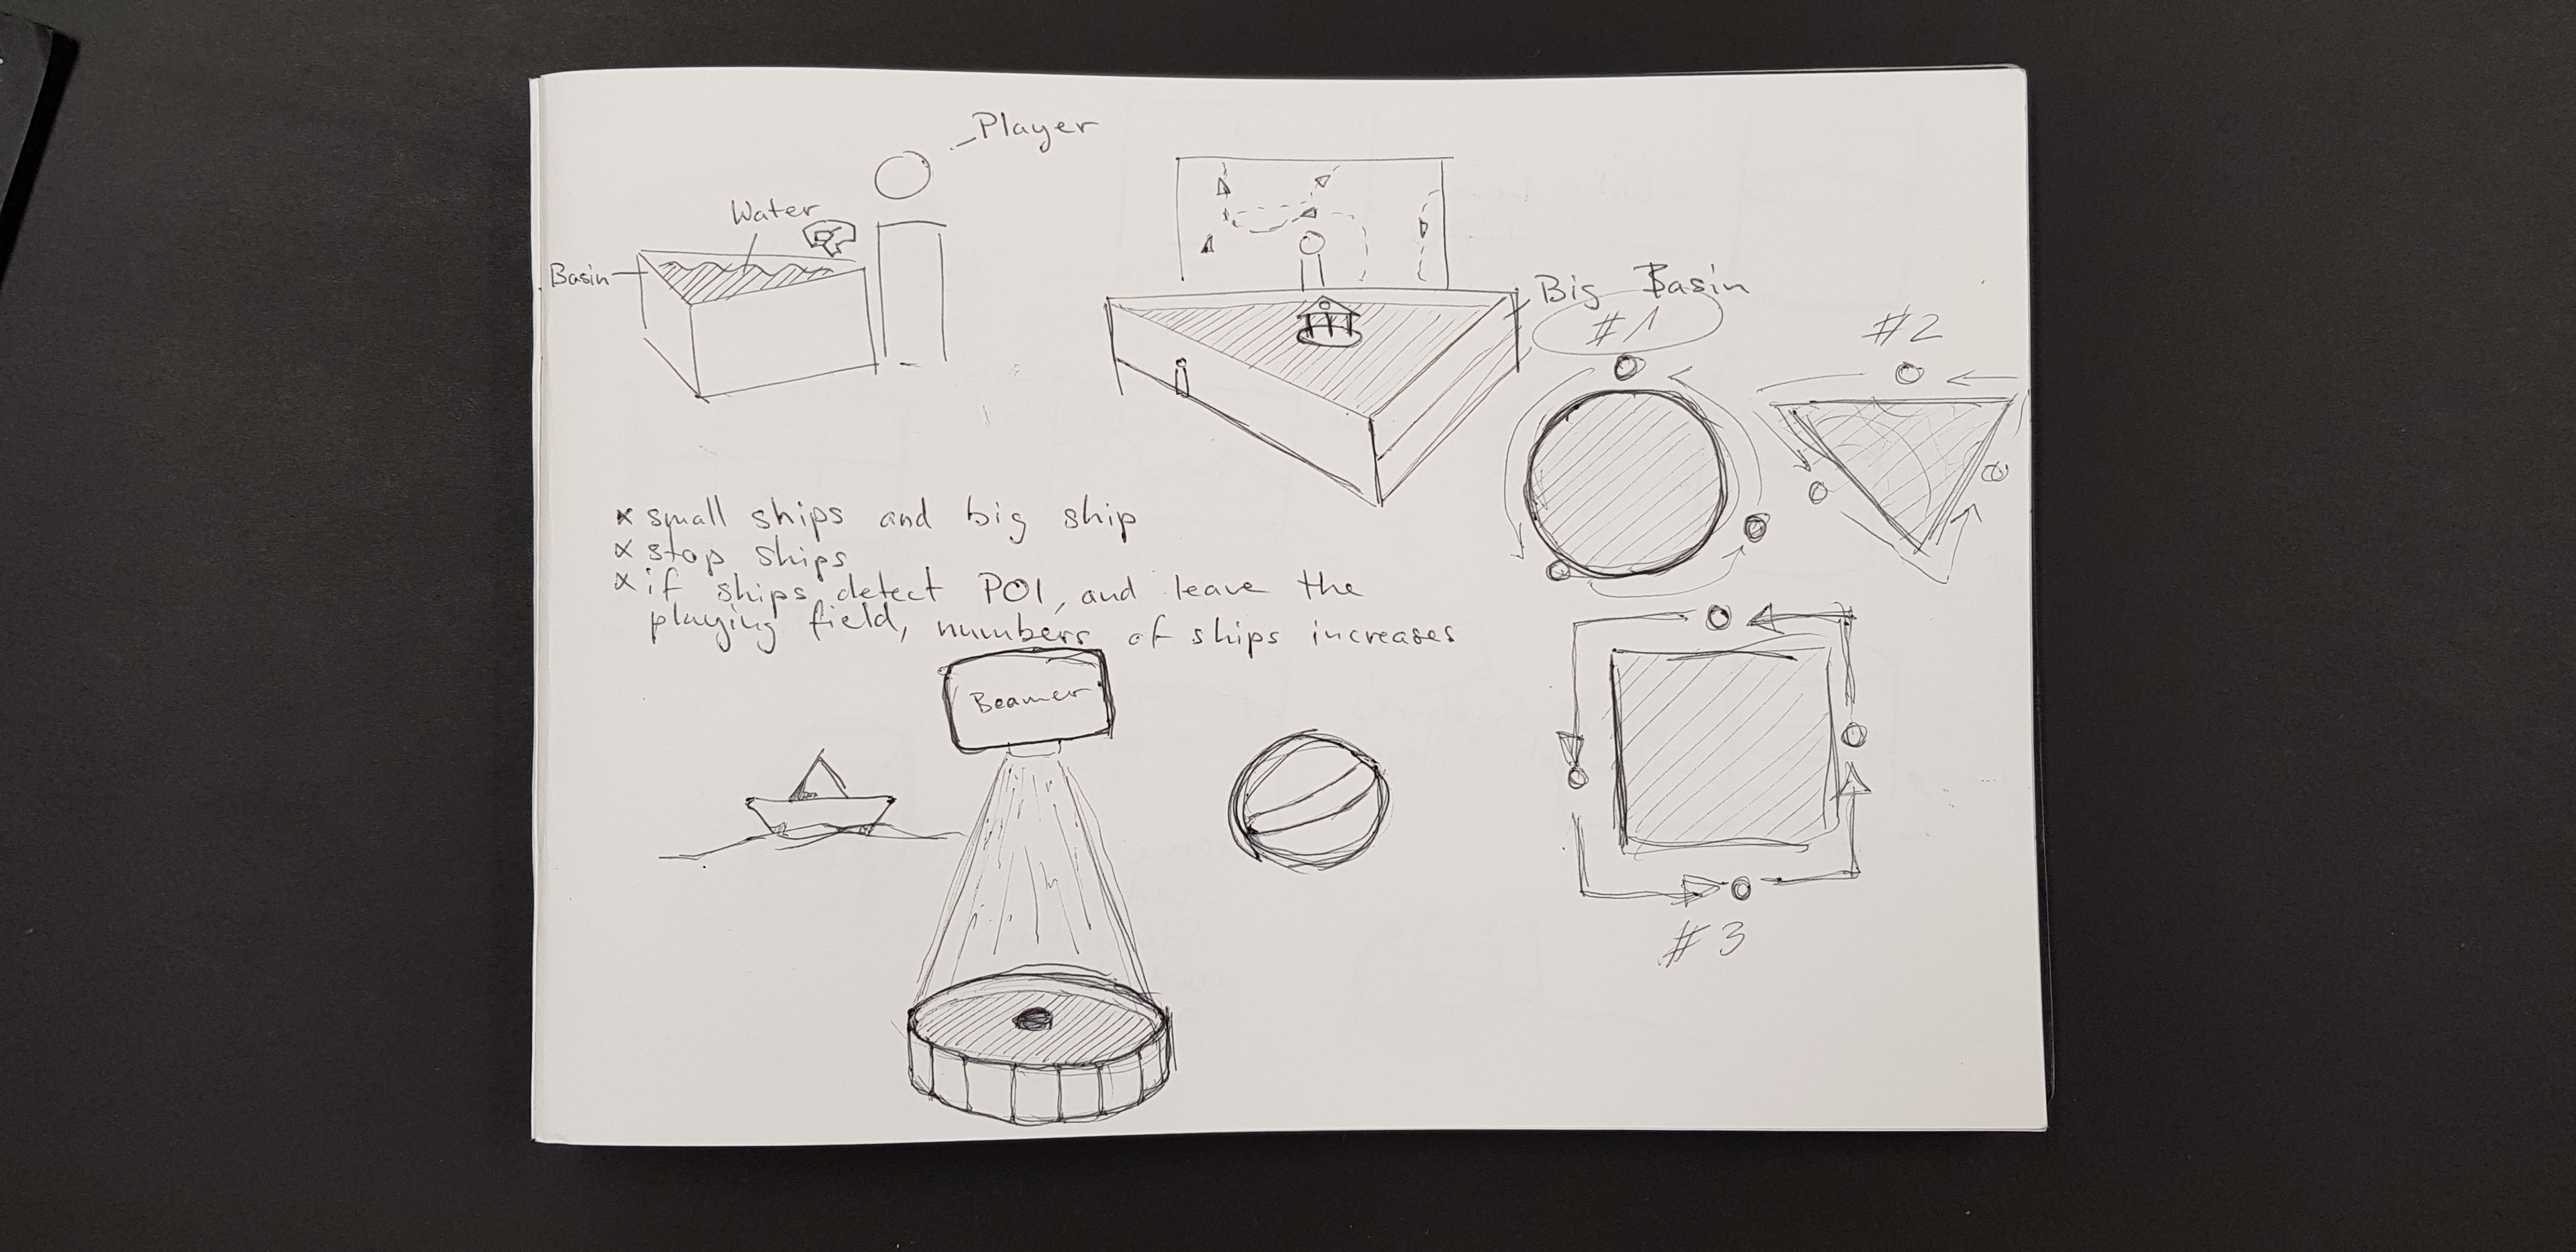 Player
Water
Basin
Big Basin
#1
#2
x small ships and big ship
x stop ships
x if ships detect POI, and leave the
playing field, numbers of ships increases
Beamer
#3